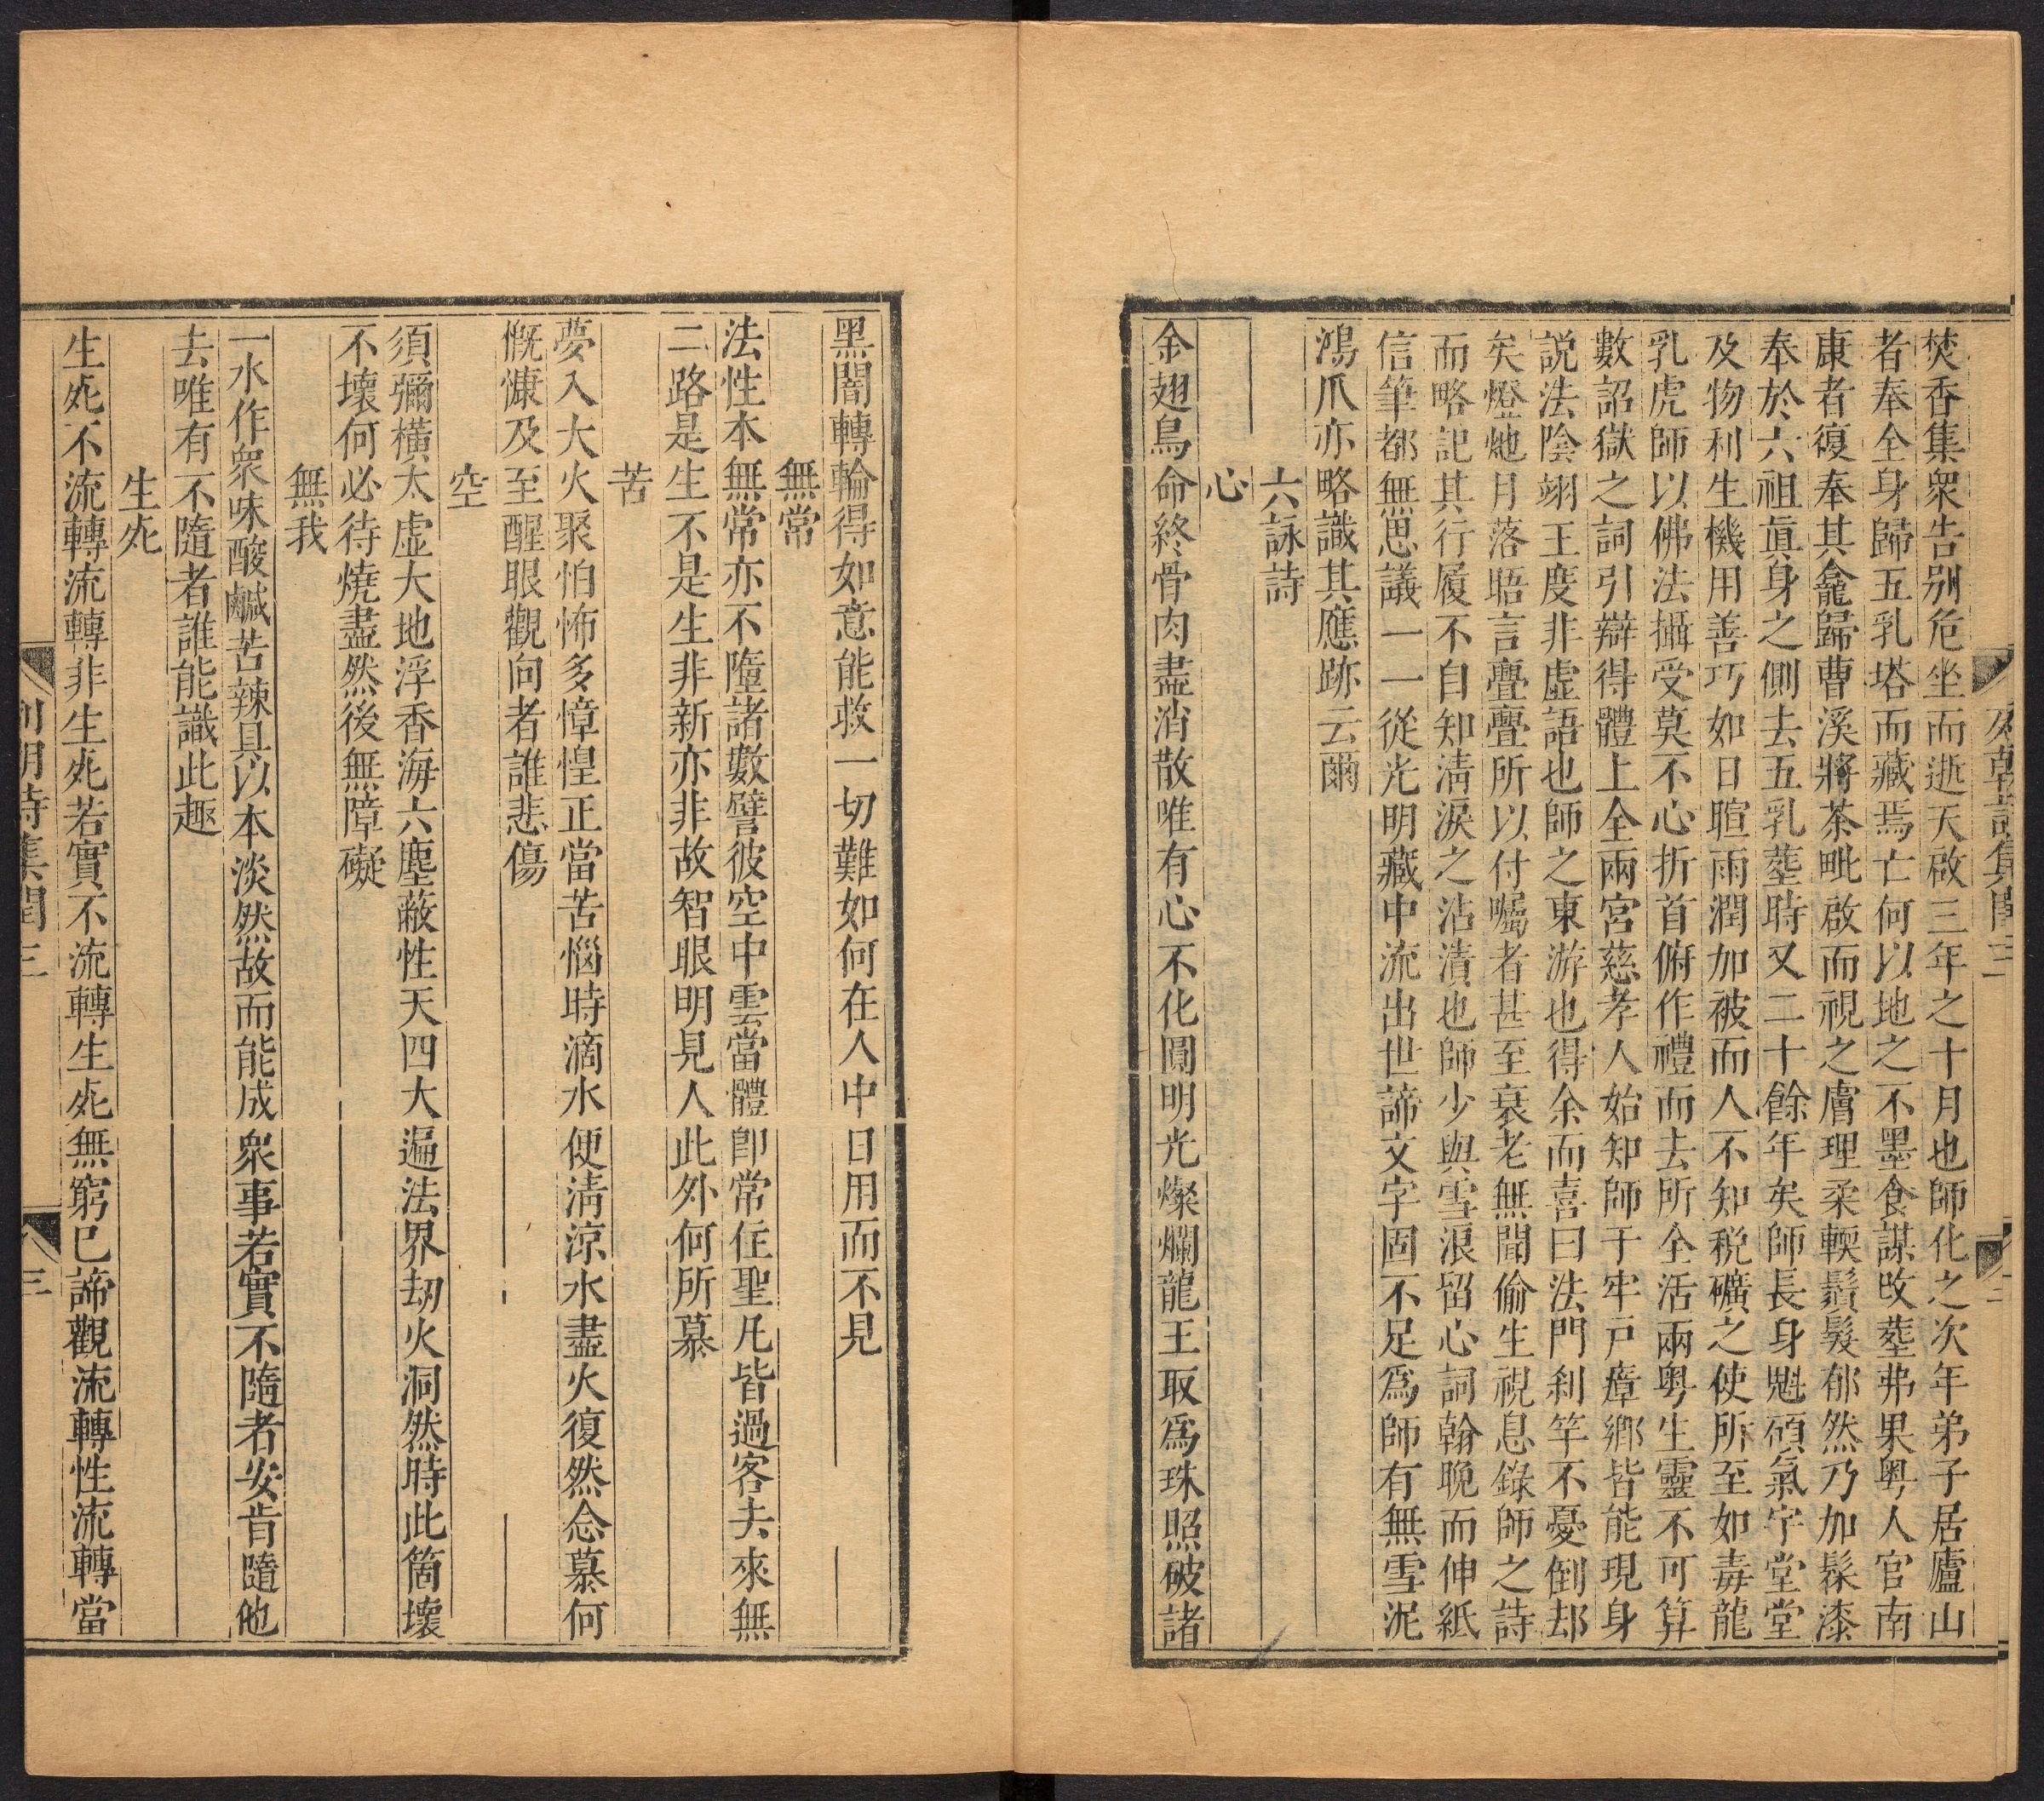 焚香集衆告别危坐而逝天啟三年之十月也師化之次年弟子居廬山
者奉全身歸五乳塔而藏焉亡何以地之不墨食謀改塟弗果粤人官南
康者復奉其龕歸曹溪將茶毗啟而視之膚理柔輭鬚髮郁然乃加髹漆
奉於六祖眞身之側去五乳塟時又二十餘年矣師長身魁碩氣宇堂堂
及物利生機用善巧如日暄雨潤加被而人不知稅礦之使所至如毒龍
乳虎師以佛法攝受莫不心折首俯作禮而去所全活兩粤生靈不可算
數詔獄之詞引辯得體上全兩宮慈孝人始知師于牢戸瘴鄉皆能現身
説法陰翊王度非虛語也師之東游也得余而喜曰法門刹竿不憂倒却
矣燈灺月落晤言亹亹所以付囑者甚至衰老無聞偷生視息錄師之詩
而略記其行履不自知淸淚之沾漬也師少與雪浪留心詞翰晚而伸紙
信筆都無思議一一從光明藏中流出世諦文字固不足爲師有無雪泥
鴻爪亦略識其應跡云爾
六詠詩
心
金翅鳥命終骨肉盡消散唯有心不化圓明光燦爛龍王取爲珠照破諸
黑闇轉輪得如意能救一切難如何在人中日用而不見
無常
法性本無常亦不墮諸數譬彼空中雲當體卽常住聖凡皆過客去來無
二路是生不是生非新亦非故智眼明見人此外何所慕
苦
夢入大火聚怕怖多慞惶正當苦惱時滴水便淸涼水盡火復然念慕何
慨慷及至醒眼觀向者誰悲傷
空
須彌橫太虛大地浮香海六塵蔽性天四大遍法界劫火洞然時此箇壞
不壞何必待燒盡然後無障礙
無我
一水作衆味酸鹹苦辣具以本淡然故而能成衆事若實不隨者安肯隨他
去唯有不隨者誰能識此趣
生死
生死不流轉流轉非生死若實不流轉生死無窮已諦觀流轉性流轉當
列朝詩集閏三
三